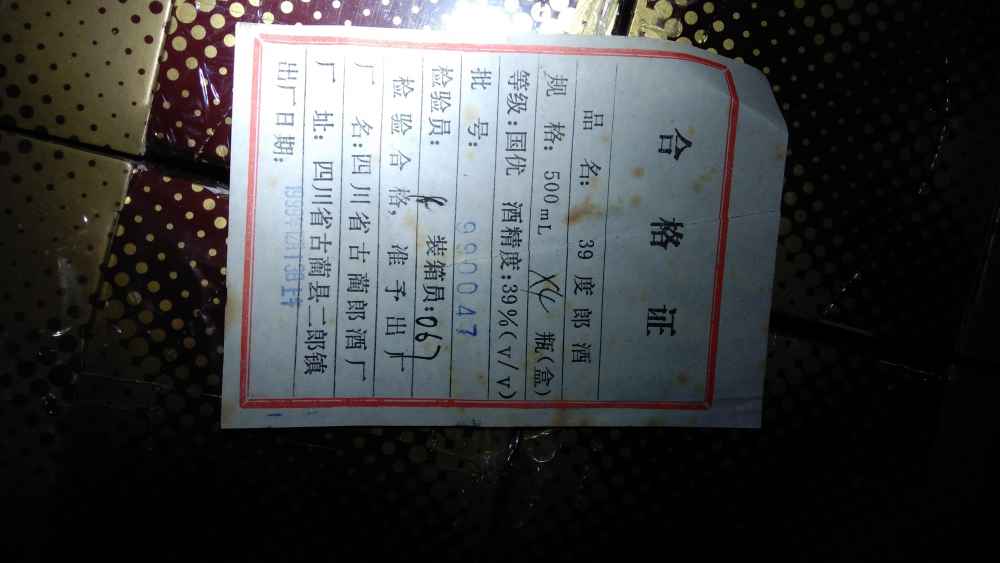 合格证
品名: 39度郎酒
规格: 500mL X4 瓶(盒)
等级:国优 酒精度:39%(v/v)
批号: 990047
检验员: 装箱员:067
检验合格,准予出厂
厂名:四川省古蔺郎酒厂
厂址:四川省古蔺县二郎镇
出厂日期: